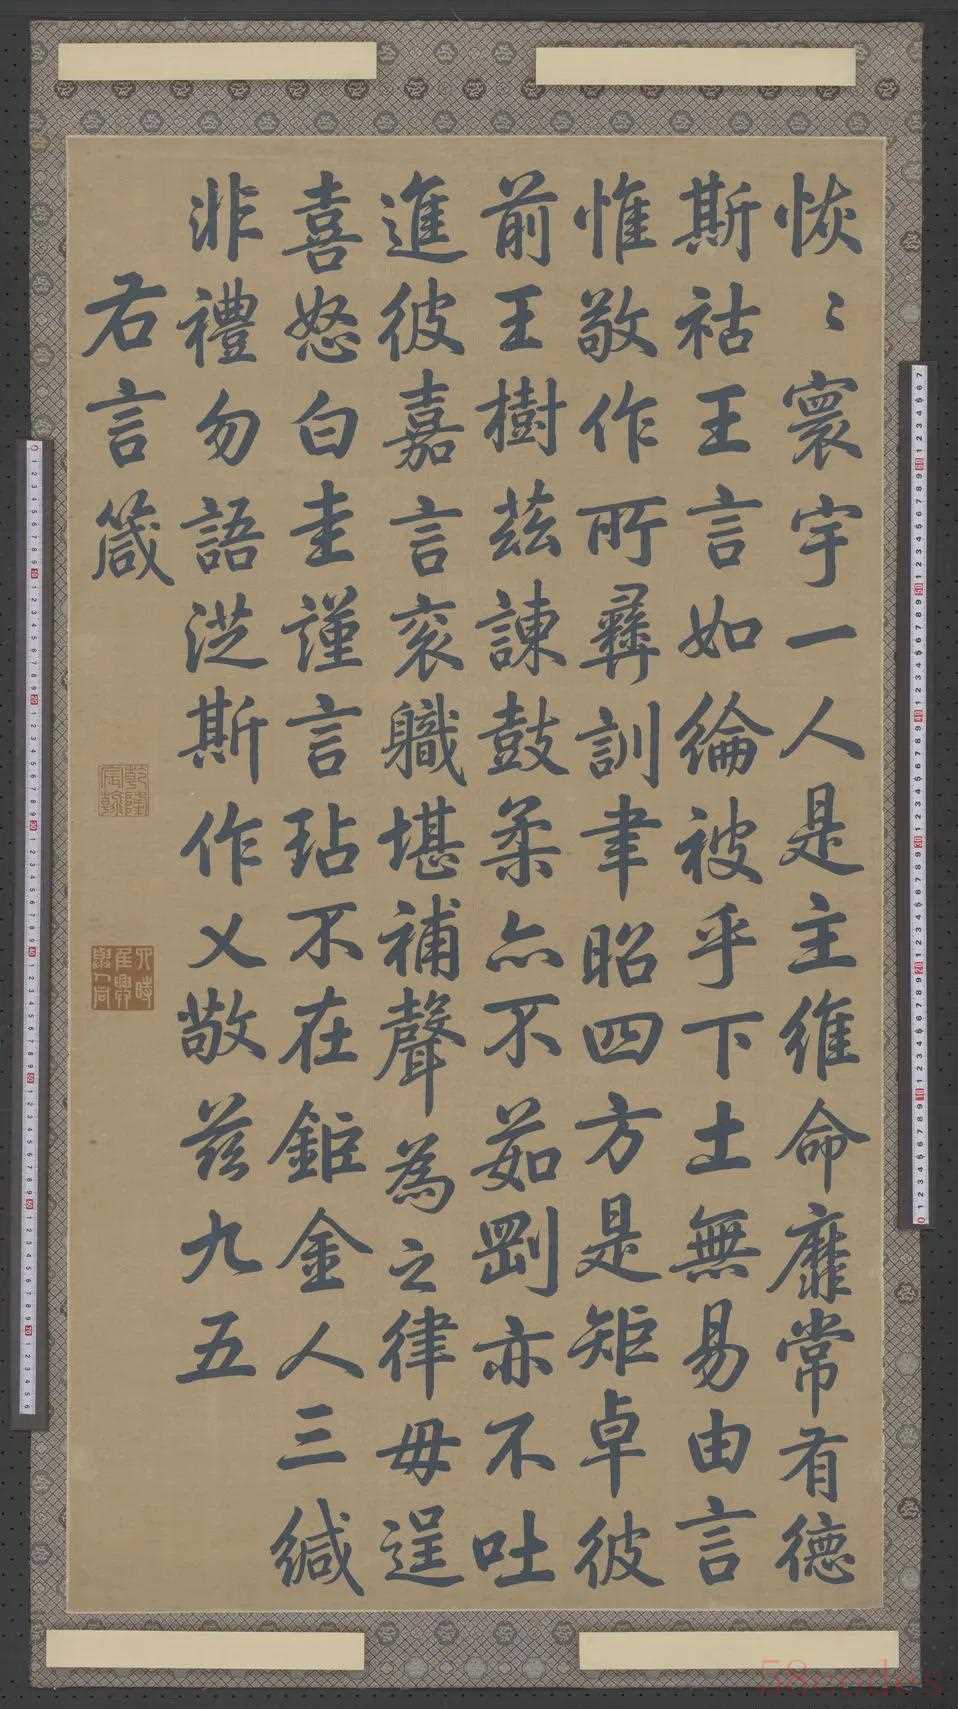 恢〻寰宇一人是主維命靡常有德
斯祜王言如綸被乎下土無易由言
惟敬作所彝訓聿昭四方是矩卓彼
前王樹茲諫鼓柔亦不茹剛亦不吐
進彼嘉言袞職堪補聲為之律毋逞
喜怒白圭謹言玷不在鉅金人三緘
非禮勿語涖斯作乂敬茲九五
右言箴
乾隆宸翰
58codes